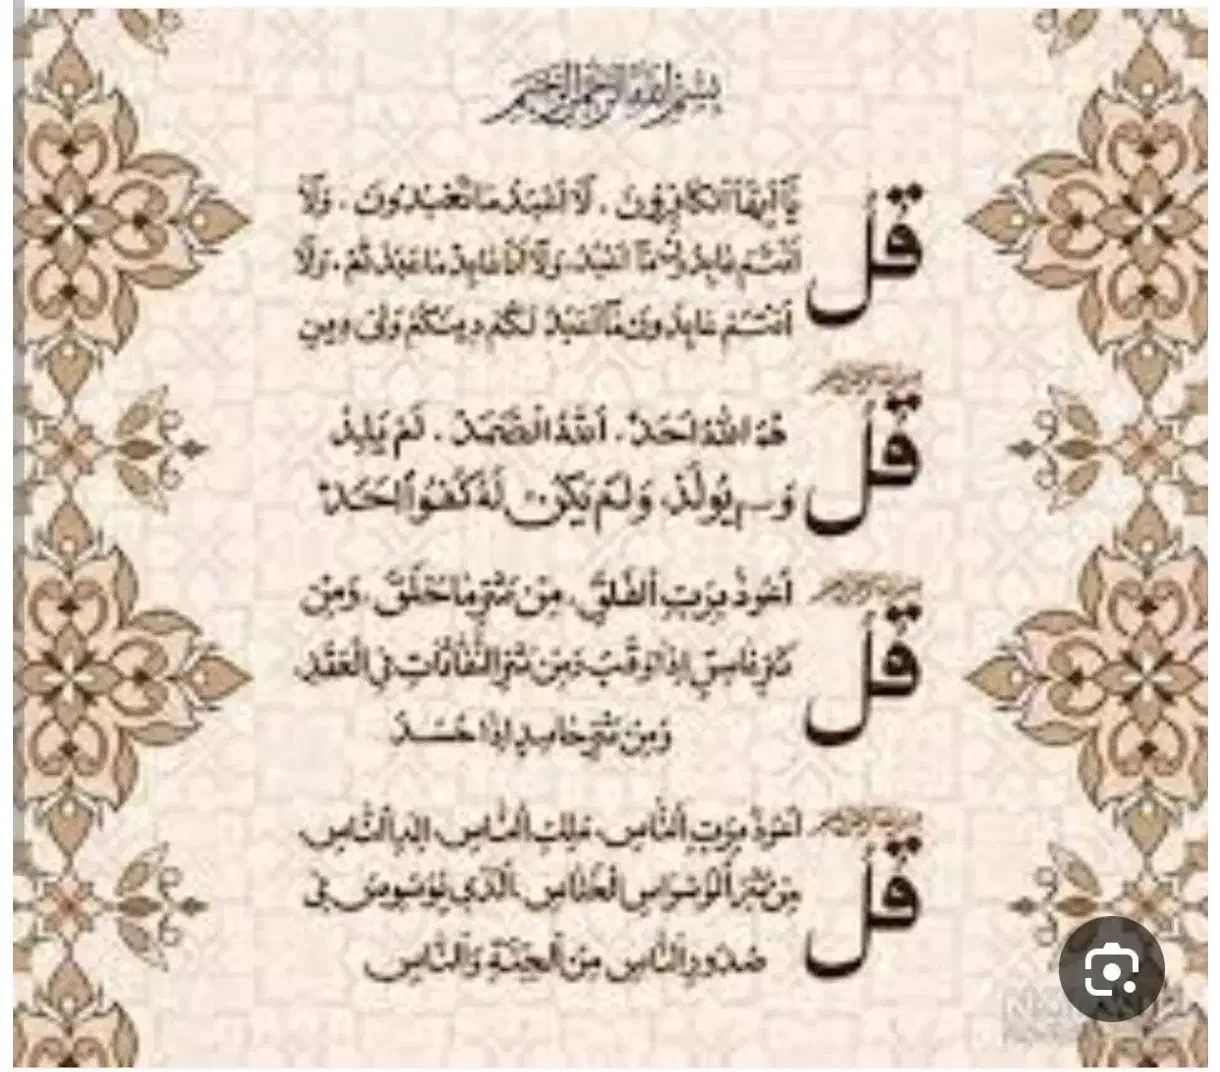 بِسْمِ اللَّهِ الرَّحْمَنِ الرَّحِيمِ
قُلْ يَا أَيُّهَا الْكَافِرُونَ . لَا أَعْبُدُ مَا تَعْبُدُونَ . وَلَا
أَنْتُمْ عَابِدُونَ مَا أَعْبُدُ . وَلَا أَنَا عَابِدٌ مَا عَبَدْتُمْ . وَلَا
أَنْتُمْ عَابِدُونَ مَا أَعْبُدُ لَكُمْ دِينُكُمْ وَلِيَ دِينِ
بِسْمِ اللَّهِ الرَّحْمَنِ الرَّحِيمِ
قُلْ هُوَ اللَّهُ أَحَدٌ . اللَّهُ الصَّمَدُ . لَمْ يَلِدْ
وَلَمْ يُولَدْ . وَلَمْ يَكُنْ لَهُ كُفُوًا أَحَدٌ
بِسْمِ اللَّهِ الرَّحْمَنِ الرَّحِيمِ
قُلْ أَعُوذُ بِرَبِّ الْفَلَقِ . مِنْ شَرِّ مَا خَلَقَ . وَمِنْ
شَرِّ غَاسِقٍ إِذَا وَقَبَ وَمِنْ شَرِّ النَّفَّاثَاتِ فِي الْعُقَدِ .
وَمِنْ شَرِّ حَاسِدٍ إِذَا حَسَدَ
بِسْمِ اللَّهِ الرَّحْمَنِ الرَّحِيمِ
قُلْ أَعُوذُ بِرَبِّ النَّاسِ . مَلِكِ النَّاسِ . إِلَهِ النَّاسِ .
مِنْ شَرِّ الْوَسْوَاسِ الْخَنَّاسِ . الَّذِي يُوَسْوِسُ فِي
صُدُورِ النَّاسِ مِنَ الْجِنَّةِ وَالنَّاسِ